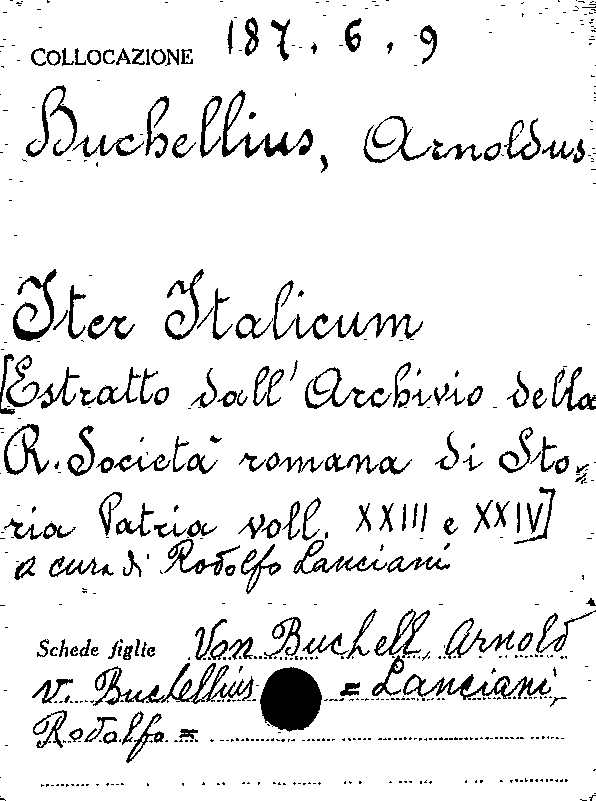 COLLOCAZIONE 187.6.9
Buchellius, Arnoldus
Iter Italicum
[Estratto dall'Archivio della
R. Società romana di Sto-
ria Patria voll. XXIII e XXIV]
a cura di Rodolfo Lanciani
Schede figlie Von Buchell, Arnold
v. Buchellius = Lanciani,
Rodolfo =